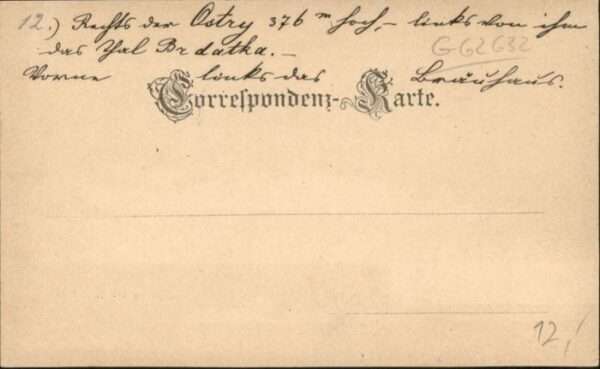 12.) Rechts der Ostry 376 m hoch, - links von ihm
das Thal Brdatka. -
Vorne links das Bräuhaus.
G-G2 G32
Correspondenz-Karte.
12,/